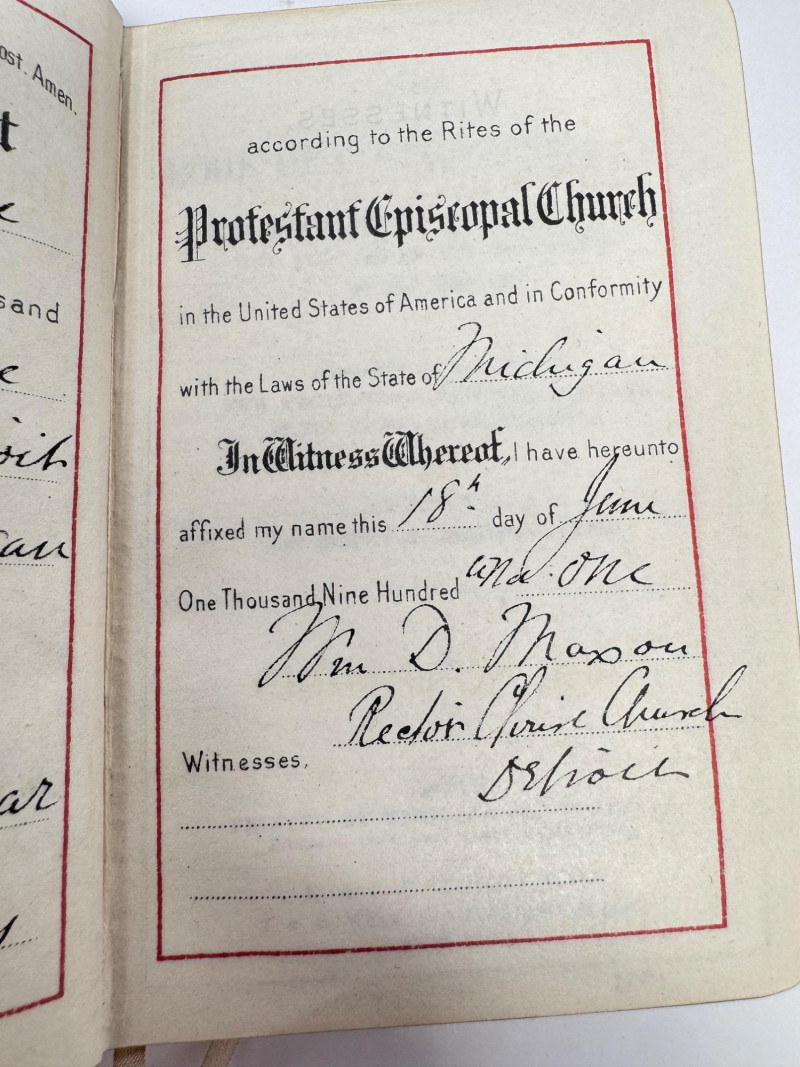 ost. Amen.
sand
oit
an
ar
according to the Rites of the
Protestant Episcopal Church
in the United States of America and in Conformity
with the Laws of the State of Michigan
In Witness Whereof, I have hereunto
affixed my name this 18th day of June
One Thousand Nine Hundred and one
Wm D. Maxon
Rector Christ Church
Detroit
Witnesses,
WITNESSES